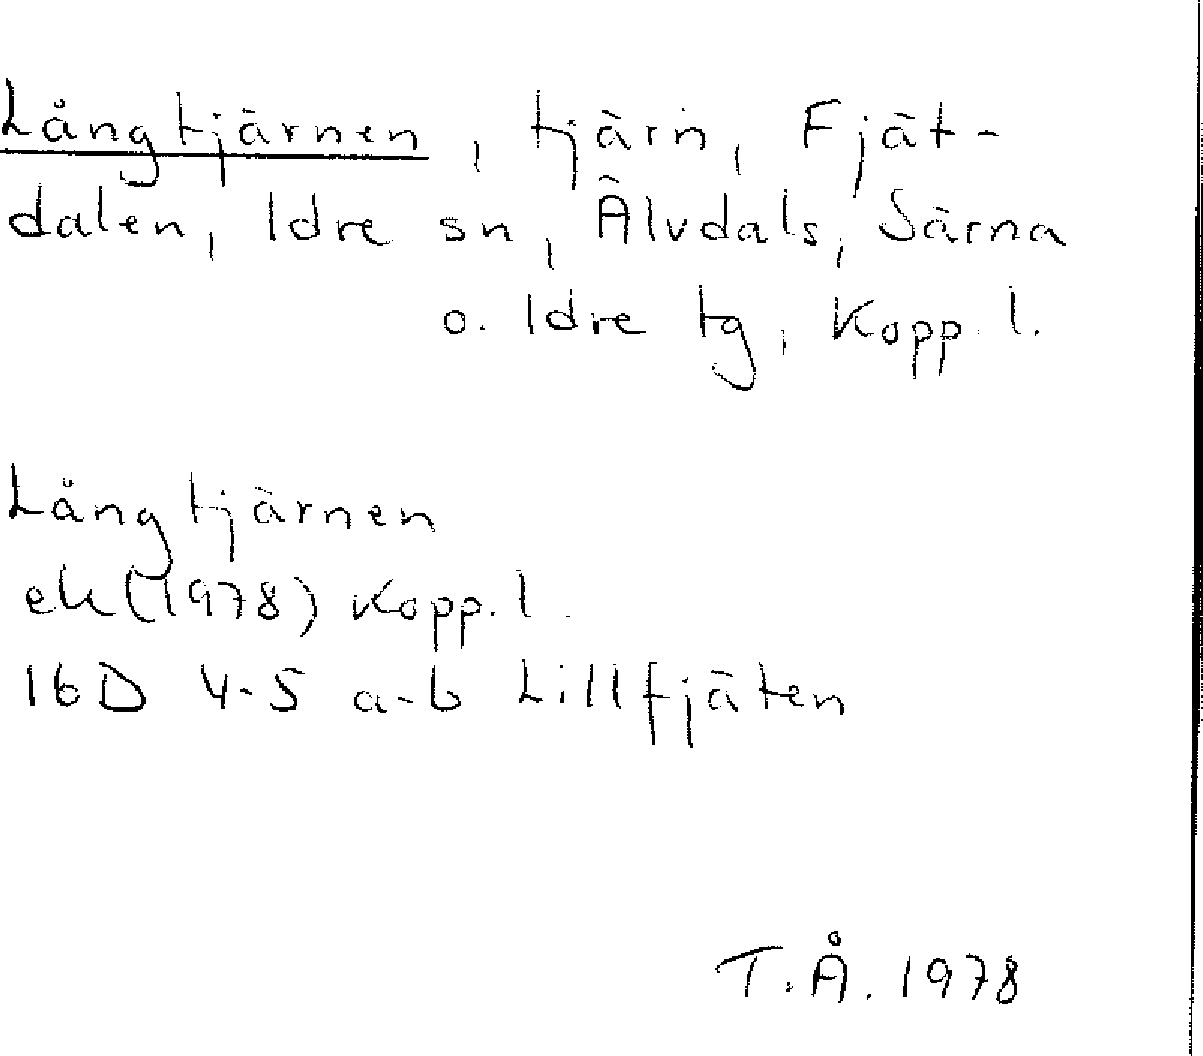 Långtjärnen, tjärn, Fjät-
dalen, Idre sn, Älvdals, Särna
o. Idre tg, Kopp. l.
Långtjärnen
ek (1978) Kopp. l.
16D 4-5 a-b Lillfjäten
T.Å. 1978